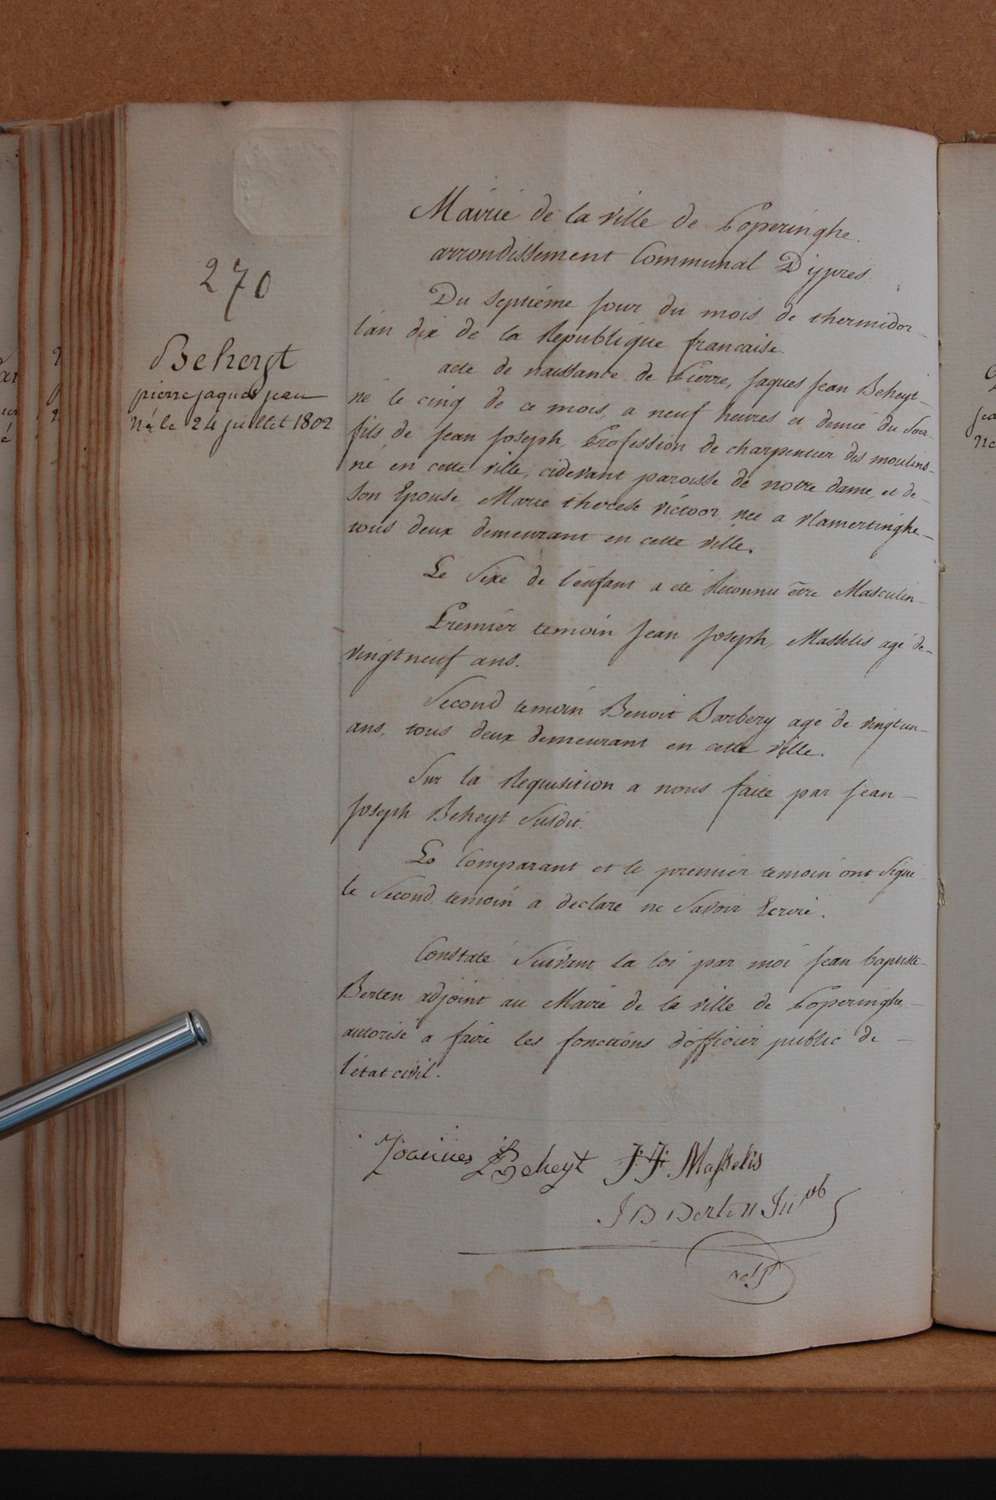 270
Beheyt
pierre jaques jean
né le 24 juillet 1802
Mairie de la ville de Poperinghe.
arrondissement Communal D'ypres
Du Septiéme jour du mois de thermidor
l'án dix de la Republique francaise
acte de naissance de Pierre, jaques jean Beheyt
né le cinq de ce mois, a neuf heures et demie du Soir
fils de jean joseph Profession de charpentier des moulins
né en cette ville, cidevant paroisse de notre dame, et de
Son Epouse Marie therese victoor née a vlamertinghe
tous deux demeurant en cette ville.
Le Sexe de l'enfant a été Reconnu être Masculin
Premiér temoin jean joseph Masselis agé de
vingtneuf ans.
Second temoin Benoit Barbery agé de vingtun
ans, tous deux demeurant en cette ville.
Sur la Requisition a nous faite par jean
joseph Beheyt Susdit.
Le Comparant et le premier temoin ont Signé
le Second temoin a declaré ne Savoir Ecrire.
Constaté Suivant la loi par moi jean baptiste
Berten adjoint au Maire de la ville de Poperinghe
autorisé a faire les fonctions d'officier public de
l'état civil.
Joannes Beheyt JJ Masselis
J B Berten